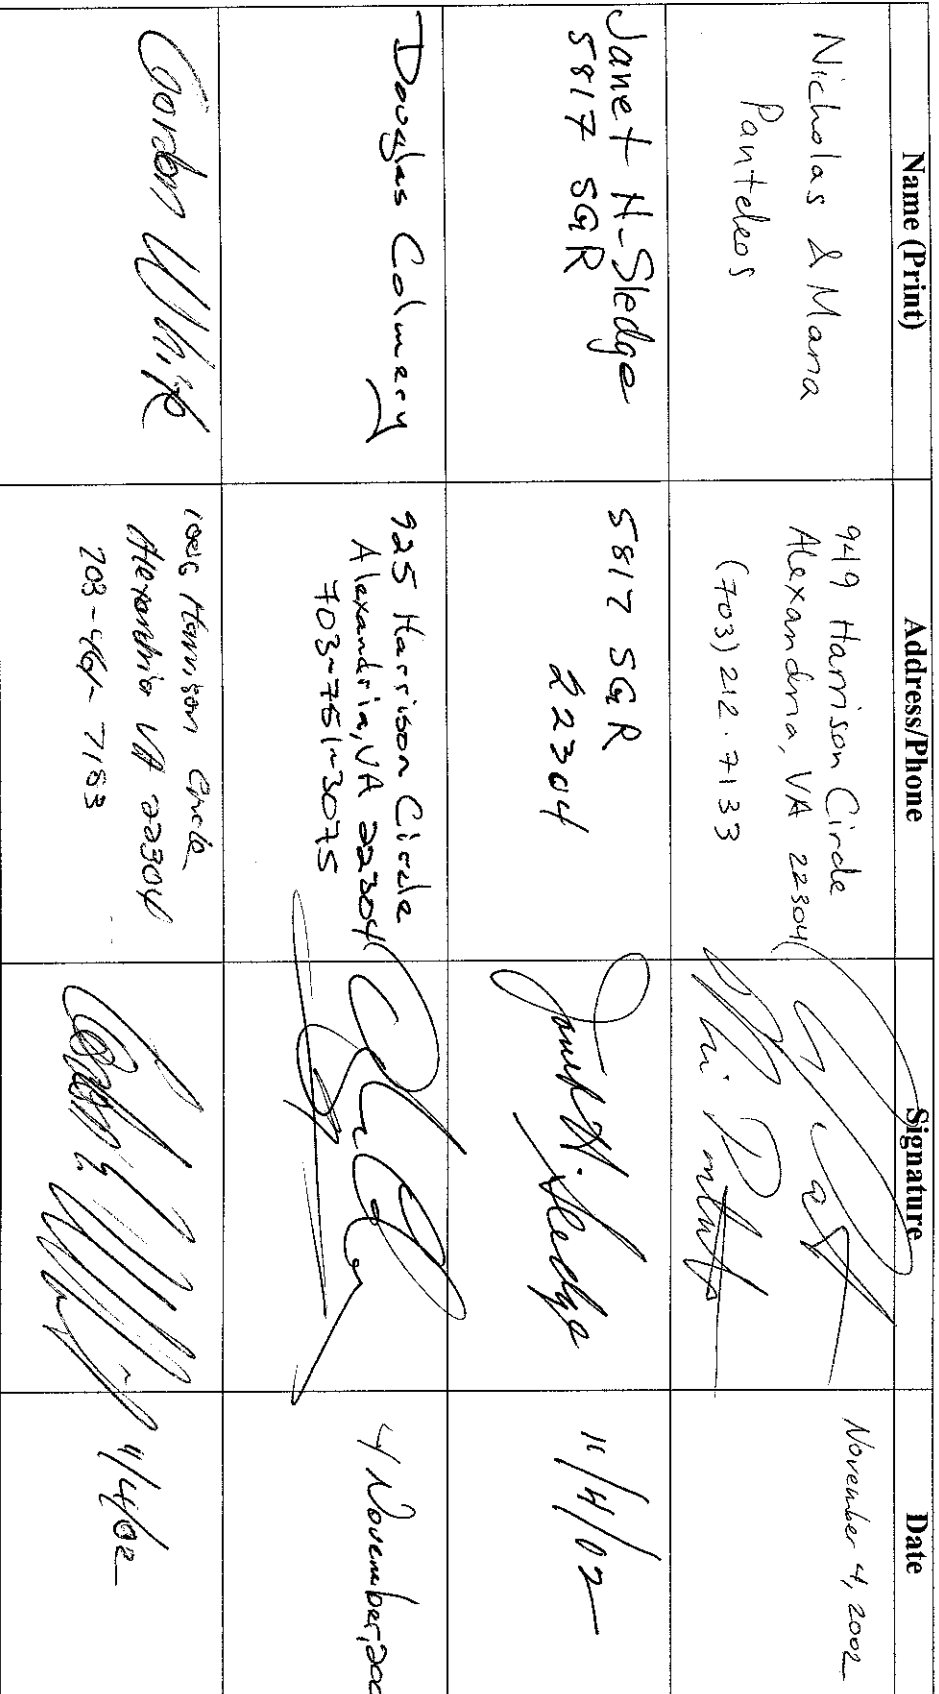 Name (Print) Address/Phone Signature Date
Nicholas & Maria
Panteleos
949 Harrison Circle
Alexandria, VA 22304
(703) 212.7133
November 4, 2002
Janet H-Sledge
5817 SGR
5817 SGR
22304
Janet H. Sledge
11/4/02
Douglas Colmery
925 Harrison Circle
Alexandria, VA 22304
703-751-3075
4 November, 200
Gordon White
Harrison Circle
Alexandria VA 22304
11/4/02